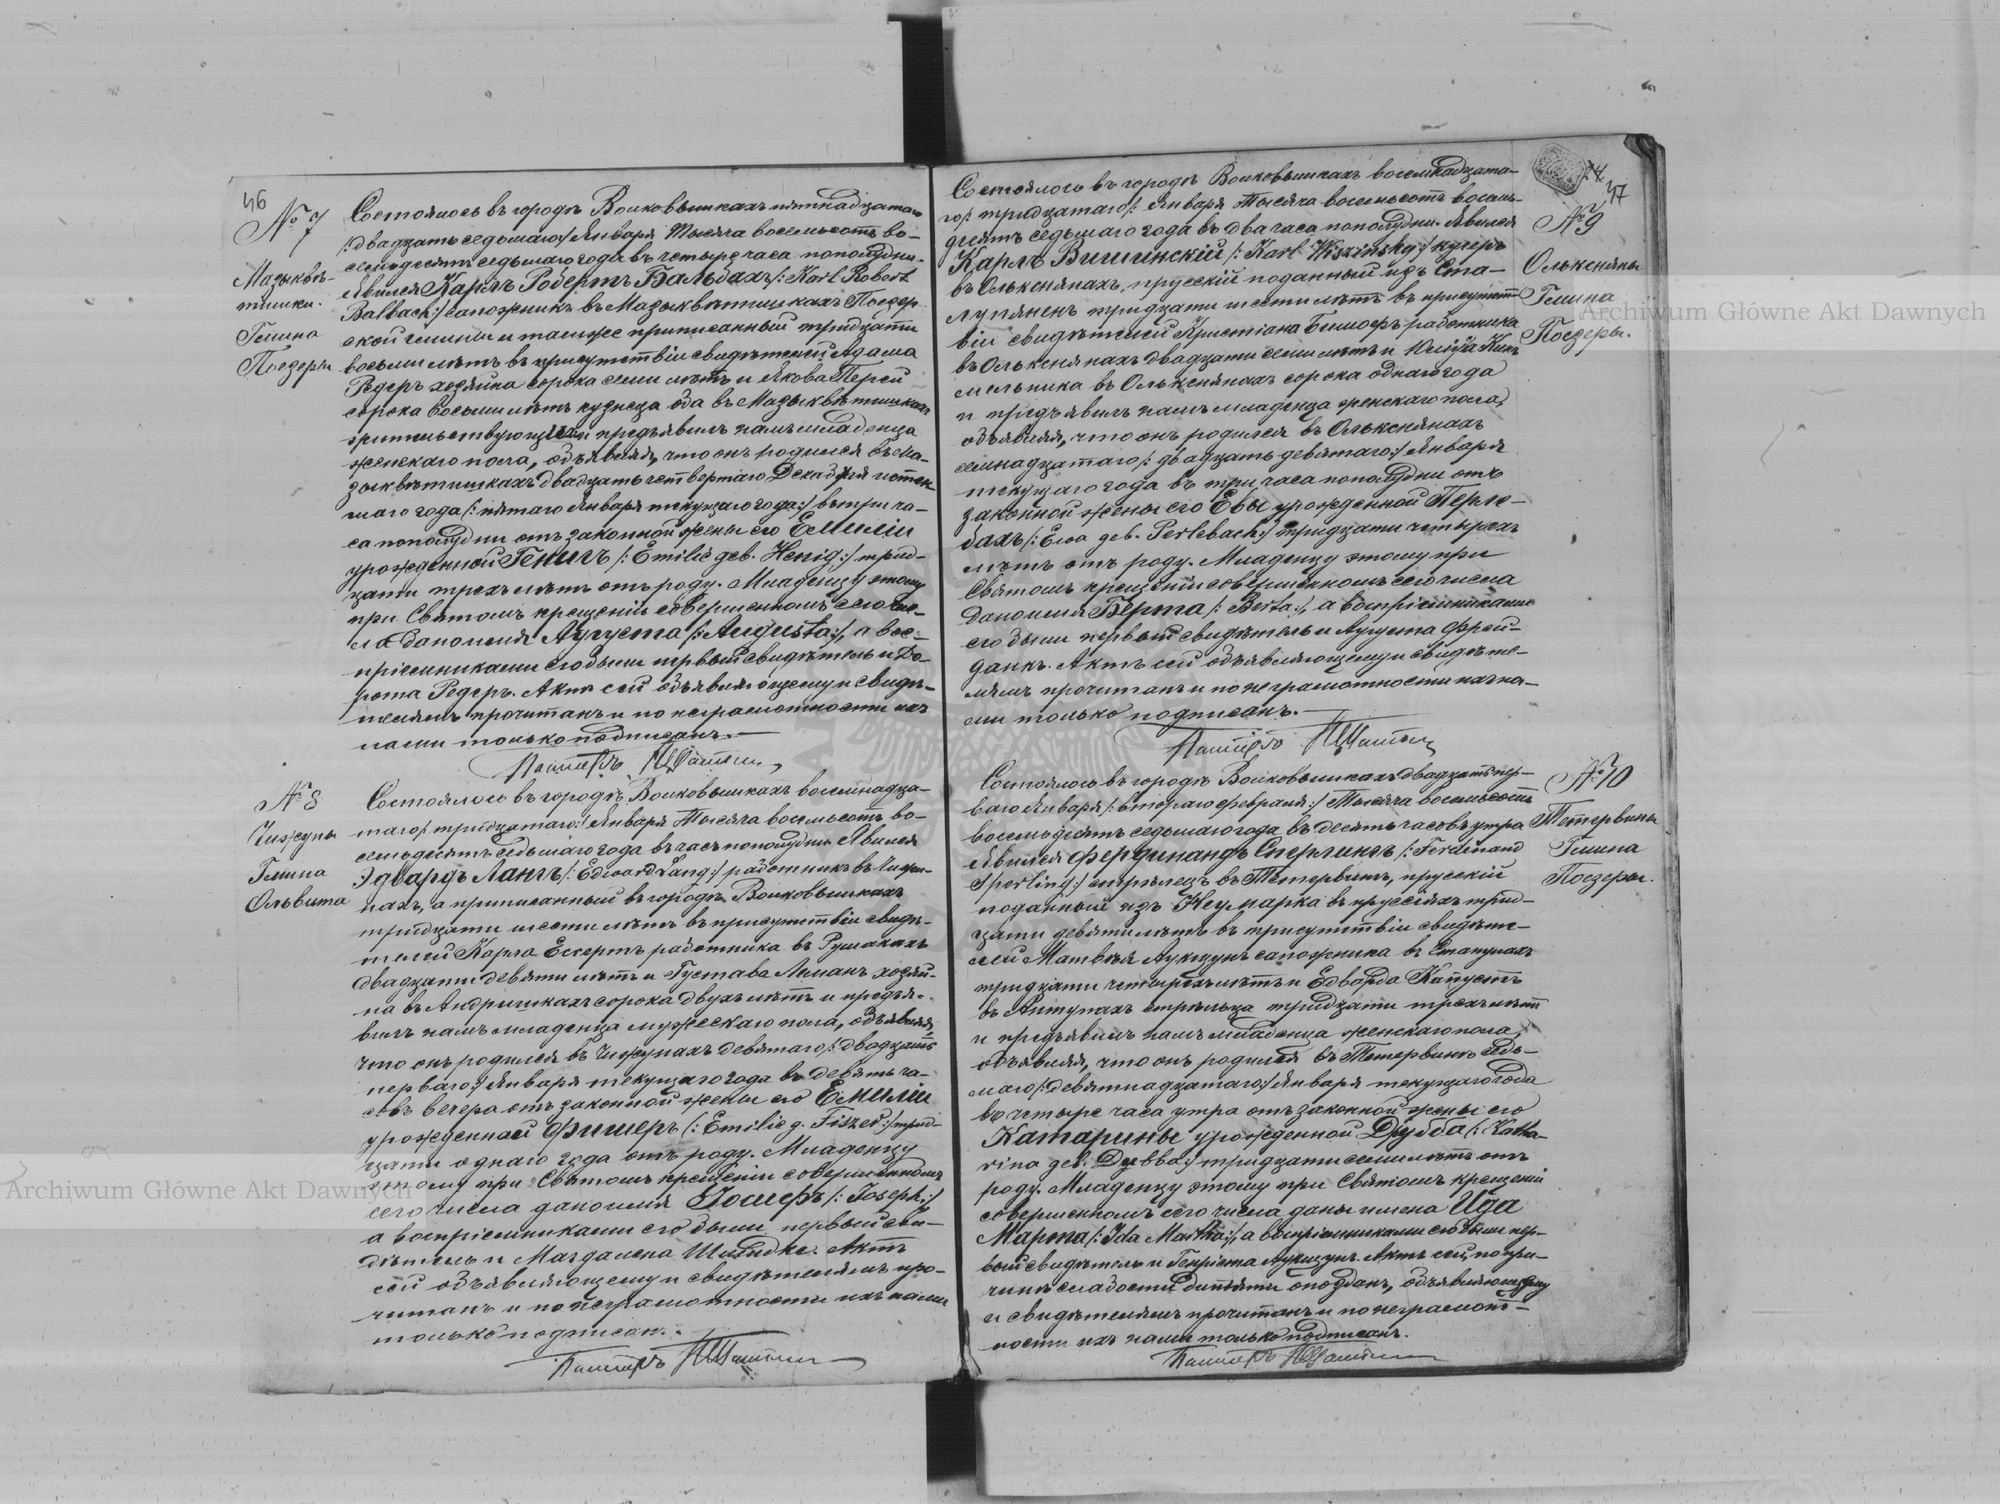 46
№ 7
Мазыквѣ-
тишки.
Гмина
Поезеры
Состоялось въ городѣ Волковышкахъ пятнадцатаго
/:двадцать седьмаго:/ Января Тысяча восемьсотъ во-
семьдесятъ седьмаго года въ четыре часа пополудни.
Явился Карлъ Робертъ Бальбахъ /: Karl Robert
Balbach:/ сапожникъ въ Мазыквѣтишкахъ Поезер-
ской гмины и тамже приписанный тридцати
восьми лѣтъ въ присутствіи свидѣтелей Адама
Редеръ хозяина сорока семи лѣтъ и Якова Перей
сорока восьми лѣтъ кузнеца оба въ Мазыквѣтишкахъ
жительствующихъ и предъявилъ намъ младенца
женскаго пола, объявляя, что онъ родился въ Ма-
зыквѣтишкахъ двадцать четвертаго Декабря истек-
шаго года /: пятаго Января текущаго года:/ въ три ча-
са пополудни отъ законной жены его Емиліи
урожденной Генигъ /: Emilie geb. Henig:/ трид-
цати трехъ лѣтъ отъ роду. Младенцу этому
при Святомъ крещеніи совершенномъ сего чис-
ла дано имя Аугуста /: Augusta:/, а вос-
пріемниками его были первый свидѣтель и До-
рота Редеръ. Актъ сей объявляющему и свидѣ-
телямъ прочитанъ и по неграмотности ихъ
нами только подписанъ.—
Пасторъ
№ 8
Чижуны
Гмина
Ольвита
Состоялось въ городѣ Волковышкахъ восемнадца-
таго /: тридцатаго:/ Января Тысяча восемьсотъ во-
семьдесятъ седьмаго года въ часъ пополудни. Явился
Эдвардъ Лангъ /: Edward Lang:/ работникъ въ Чижу-
нахъ, а приписанный въ городѣ Волковышкахъ
тридцати шести лѣтъ въ присутствіи свидѣ-
телей Карла Есертъ работника въ Рушакахъ
двадцати девяти лѣтъ и Густава Леманъ хозяи-
на въ Андришкахъ сорока двухъ лѣтъ и предъя-
вилъ намъ младенца мужескаго пола, объявляя,
что онъ родился въ Чижунахъ девятаго /: двадцать
перваго:/ Января текущаго года въ девять ча-
совъ вечера отъ законной жены его Емиліи
урожденной Фишеръ /: Emilie g. Fiszer:/ трид-
цати однаго года отъ роду. Младенцу
этому при Святомъ крещеніи совершенномъ
сего числа дано имя Іосифъ /: Joseph:/
а воспріемниками его были первый сви-
дѣтель и Магдалена Шмидке. Актъ
сей объявляющему и свидѣтелямъ про-
читанъ и по неграмотности ихъ нами
только подписанъ.
Пасторъ
47
№ 9
Олькснаны
Гмина
Поезеры.
Состоялось въ городѣ Волковышкахъ восемнадцата-
го /: тридцатаго:/ Января Тысяча восемьсотъ восемь-
десятъ седьмаго года въ два часа пополудни. Явился
Карлъ Вишинскій /: Karl Wiszinsky:/ кучеръ
въ Олькснянахъ, прусскій поданный изъ Ста-
лупяненъ тридцати шести лѣтъ въ присутст-
віи свидѣтелей Кристіана Бишофъ работника
въ Олькснянахъ двадцати семи лѣтъ и Юлиуса Кинъ
мельника въ Олькснянахъ сорока однаго года
и предъявилъ намъ младенца женскаго пола,
объявляя, что онъ родился въ Олькснянахъ
семнадцатаго /: двадцать девятаго:/ Января
текущаго года въ три часа пополудни отъ
законной жены его Евы урожденной Перле-
бахъ /: Ewa geb. Perlebach:/ тридцати четырехъ
лѣтъ отъ роду. Младенцу этому при
Святомъ крещеніи совершенномъ сего числа
дано имя Берта /: Berta:/, а воспріемниками
его были первый свидѣтель и Аугуста Фрей-
данкъ. Актъ сей объявляющему и свидѣте-
лямъ прочитанъ и по неграмотности ихъ на-
ми только подписанъ.—
Пасторъ
№ 10
Тетервины
Гмина
Поезеры.
Состоялось въ городѣ Волковышкахъ двадцать пер-
ваго Января /: втораго Февраля:/ Тысяча восемьсотъ
восемьдесятъ седьмаго года въ десять часовъ утра
Явился Фердинандъ Сперлингъ /: Ferdinand
Sperling:/ стрѣлецъ въ Тетервинѣ, прусскій
поданный изъ Неумарка въ Пруссіяхъ трид-
цати девяти лѣтъ въ присутствіи свидѣте-
лей Матвѣя Аукшунъ сапожника въ Станунахъ
тридцати четырехъ лѣтъ и Едварда Капустъ
въ Антунахъ стрѣльца тридцати трехъ лѣтъ
и предъявилъ намъ младенца женскаго пола,
объявляя, что онъ родился въ Тетервинѣ седь-
маго /: девятнадцатаго:/ Января текущаго года
въ четыре часа утра отъ законной жены его
Катарины урожденной Дубба /: Katha-
rina geb. Dubba:/ тридцати семи лѣтъ отъ
роду. Младенцу этому при Святомъ крещеніи
совершенномъ сего числа даны имена Ида
Марта /: Ida Martha:/, а воспріемниками его были пер-
вый свидѣтель и Генріета Аукшунъ. Актъ сей, по при-
чинѣ слабости дитяти опозданъ, объявляющему
и свидѣтелямъ прочитанъ и по неграмот-
ности ихъ нами только подписанъ.
Пасторъ
Archiwum Główne Akt Dawnych
Archiwum Główne Akt Dawnych